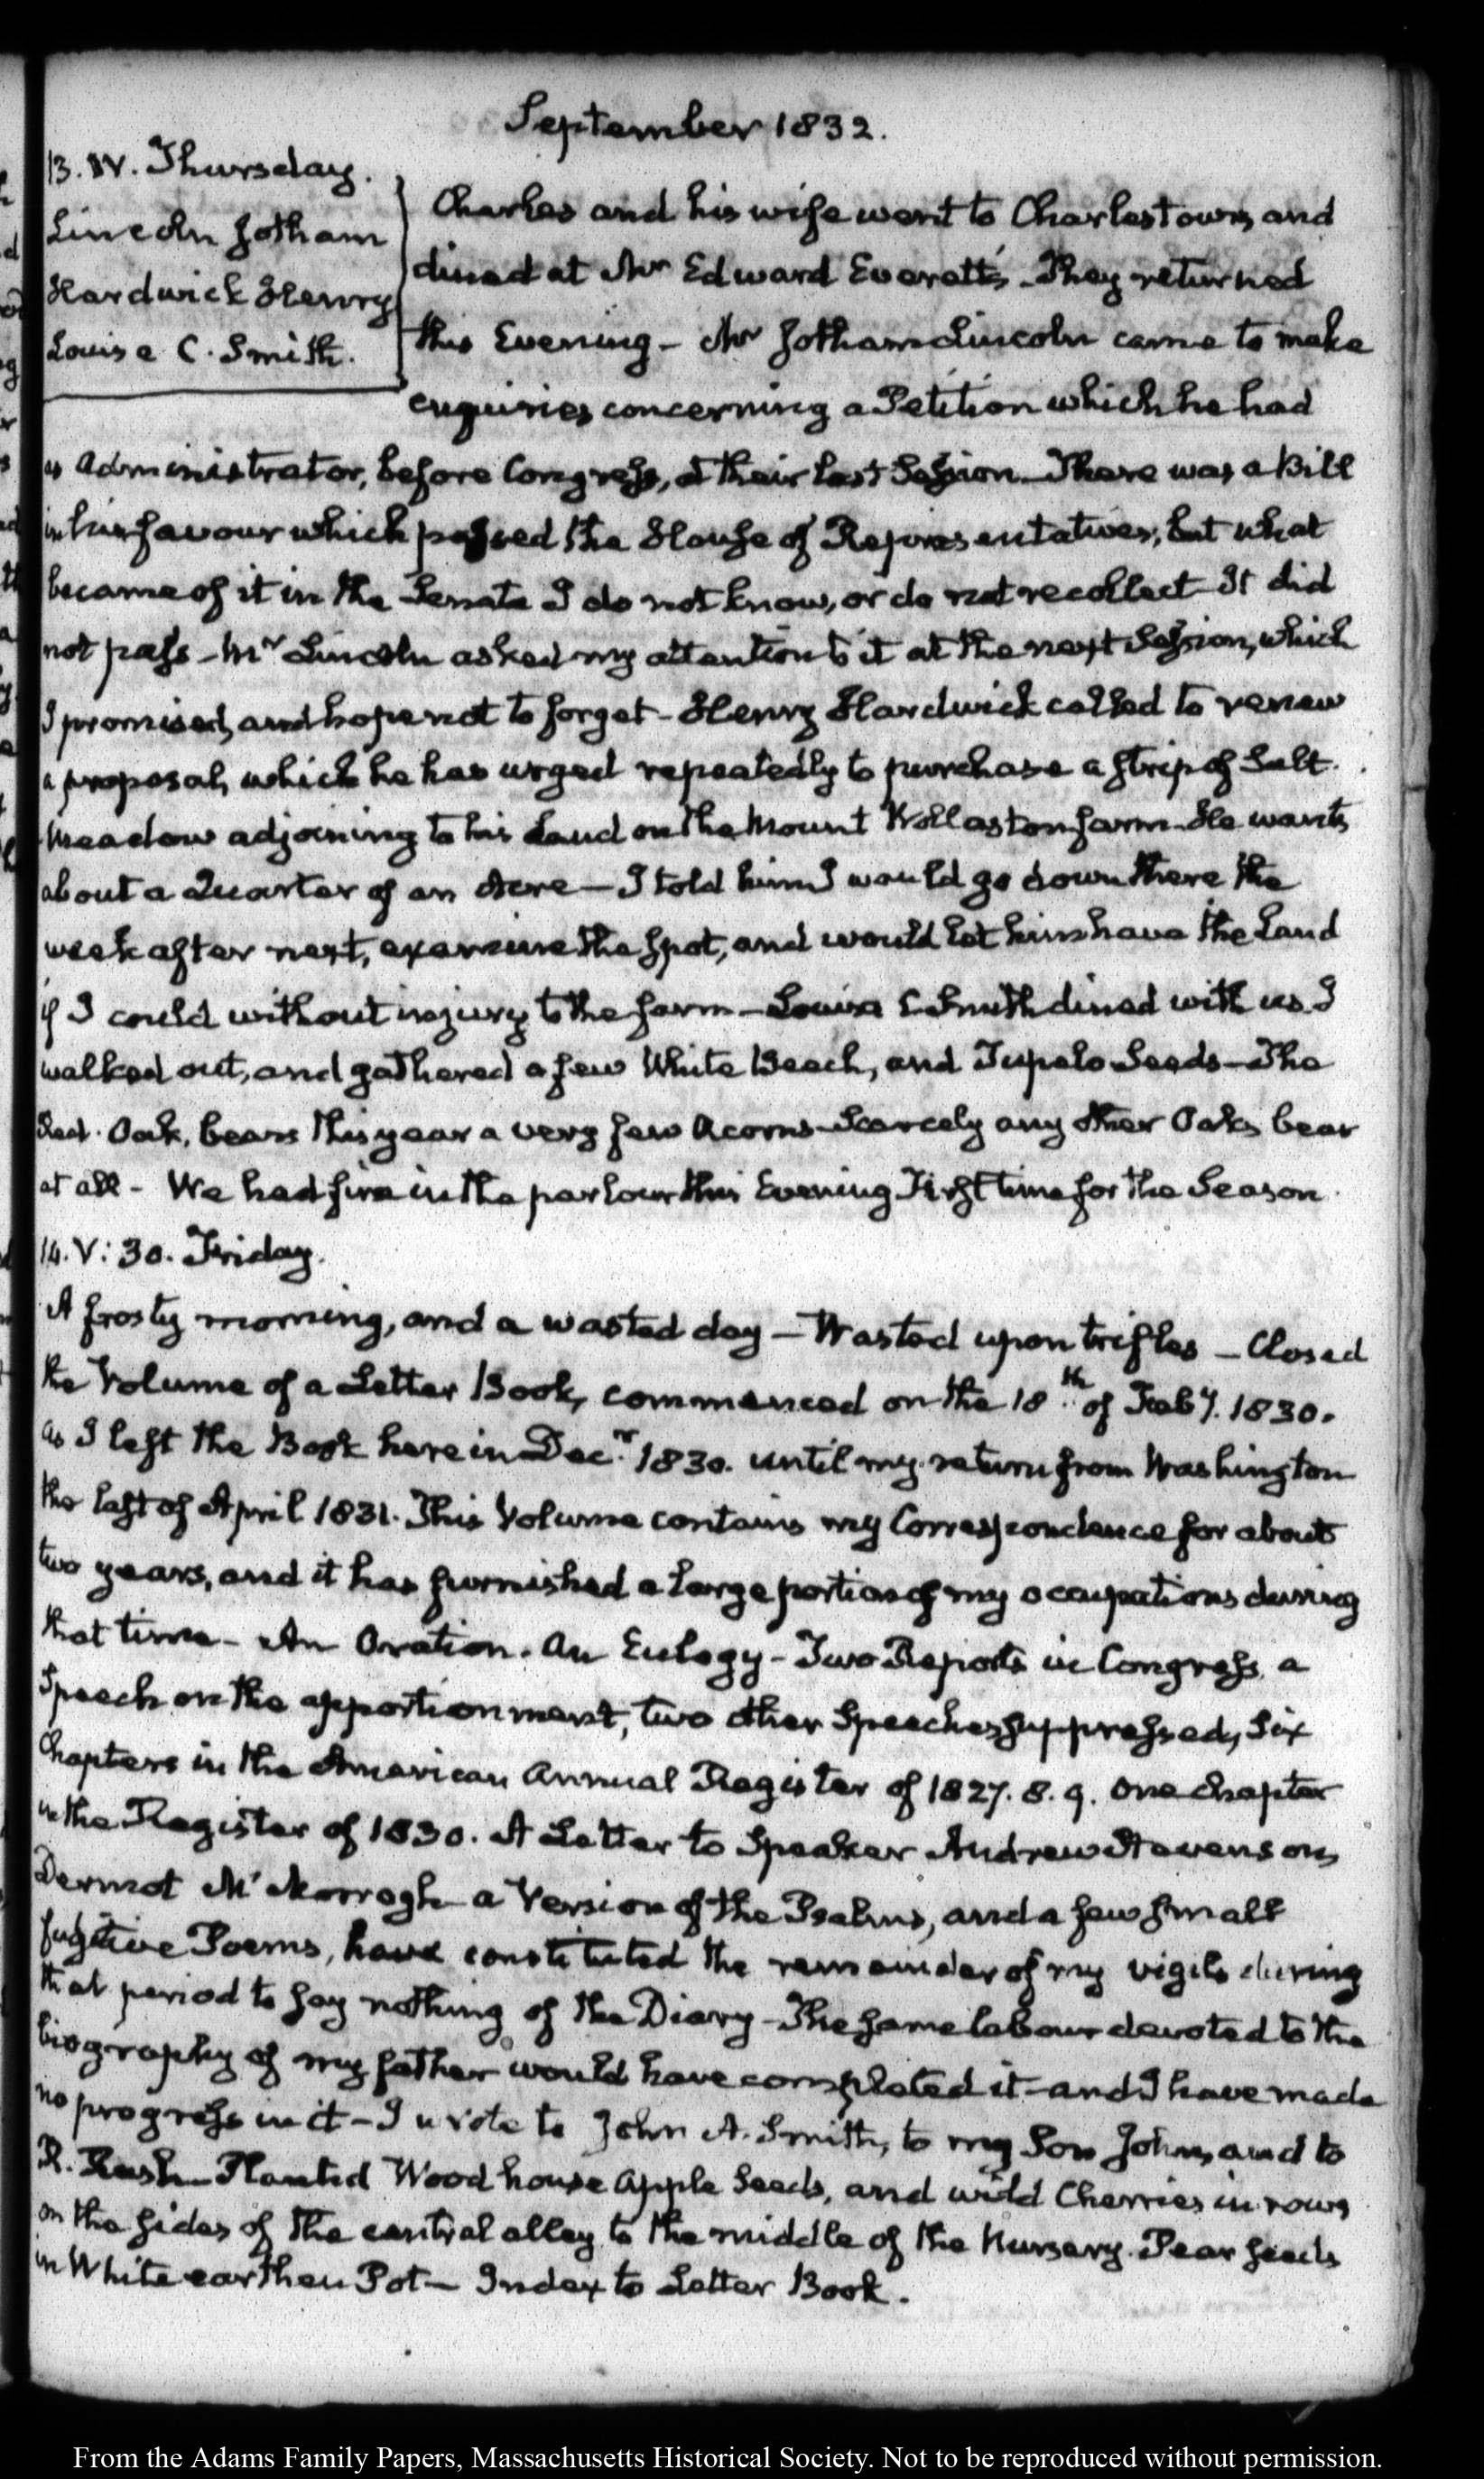 September 1832.
13. IV. Thursday.
Lincoln Jotham
Hardwick Henry
Louisa C. Smith.
Charles and his wife went to Charlestown, and
dined at Mr Edward Everett's. They returned
this Evening - Mr Jotham Lincoln came to make
enquiries concerning a Petition which he had
as Administrator, before Congress, at their last Session - There was a Bill
in his favour which passed the House of Representatives; but what
became of it in the Senate I do not know, or do not recollect - It did
not pass - Mr Lincoln asked my attention to it at the next Session, which
I promised, and hope not to forget - Henry Hardwick called to renew
a proposal, which he has urged repeatedly to purchase a strip of Salt
Meadow adjoining to his Land on the Mount Wollaston farm - He wants
about a Quarter of an Acre - I told him I would go down there the
week after next, examine the spot, and would let him have the Land
if I could without injury to the farm - Louisa C. Smith dined with us. I
walked out, and gathered a few White Beech, and Tupelo Seeds - The
Red Oak, bears this year a very few Acorns - Scarcely any other Oaks bear
at all - We had fire in the parlour this Evening First time for the Season.
14. V: 30. Friday.
A frosty morning, and a wasted day - Wasted upon trifles - Closed
the Volume of a Letter Book, commenced on the 18th of Feby. 1830.
as I left the Book here in Decr. 1830. until my return from Washington
the last of April 1831. This Volume contains my Correspondence for about
two years, and it has furnished a large portion of my occupations during
that time - An Oration. An Eulogy - Two Reports in Congress, a
Speech on the apportionment, two other Speeches suppressed, six
Chapters in the American Annual Register of 1827. 8. 9. One Chapter
in the Register of 1830. A Letter to Speaker Andrew Stevenson,
Dermot McMorrogh - a Version of the Psalms, and a few small
fugitive Poems, have constituted the remainder of my vigils during
that period to say nothing of the Diary - The same labour devoted to the
biography of my father would have completed it - and I have made
no progress in it - I wrote to John A. Smith, to my Son John, and to
R. Rush - Planted Woodhouse Apple Seeds, and wild Cherries in rows
on the sides of the central alley to the middle of the Nursery. Pear seeds
in White earthen Pot - Index to Letter Book.
From the Adams Family Papers, Massachusetts Historical Society. Not to be reproduced without permission.